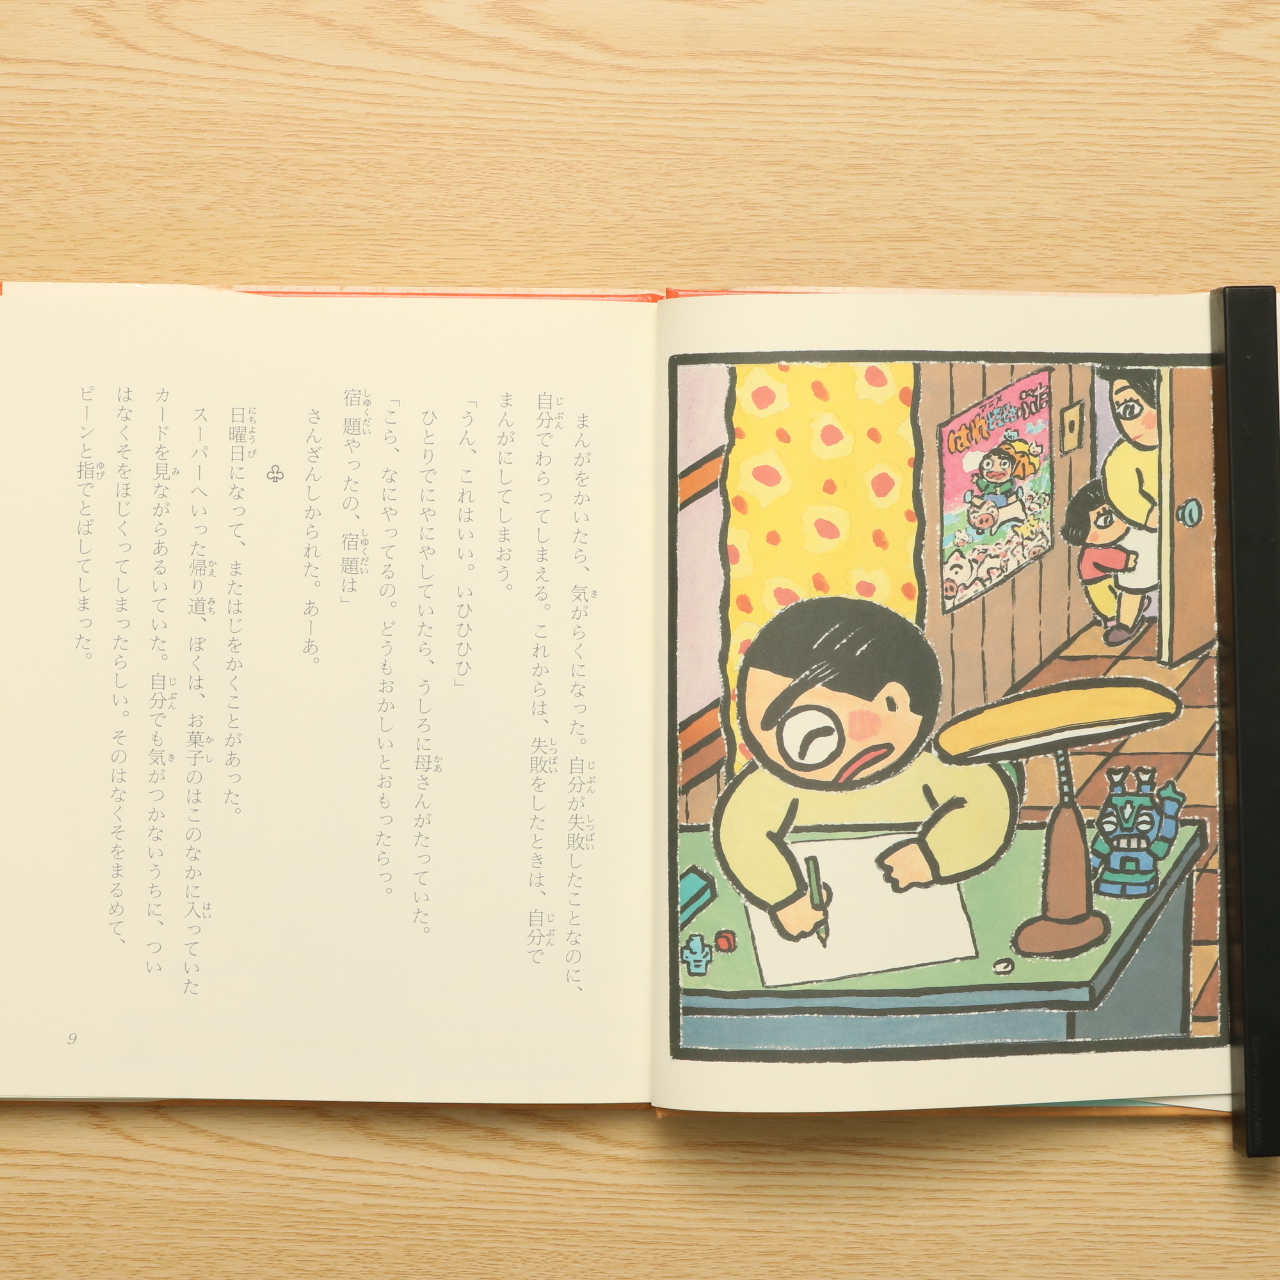 まんがをかいたら、気がらくになった。自分が失敗したことなのに、
自分でわらってしまえる。これからは、失敗をしたときは、自分で
まんがにしてしまおう。
「うん、これはいい。いひひひひ」
ひとりでにやにやしていたら、うしろに母さんがたっていた。
「こら、なにやってるの。どうもおかしいとおもったらっ。
宿題やったの、宿題は」
さんざんしかられた。あーあ。
♧
日曜日になって、またはじをかくことがあった。
スーパーへいった帰り道、ぼくは、お菓子のはこのなかに入っていた
カードを見ながらあるいていた。自分でも気がつかないうちに、つい
はなくそをほじくってしまったらしい。そのはなくそをまるめて、
ピーンと指でとばしてしまった。
9
アニメ
はれときどきぶた